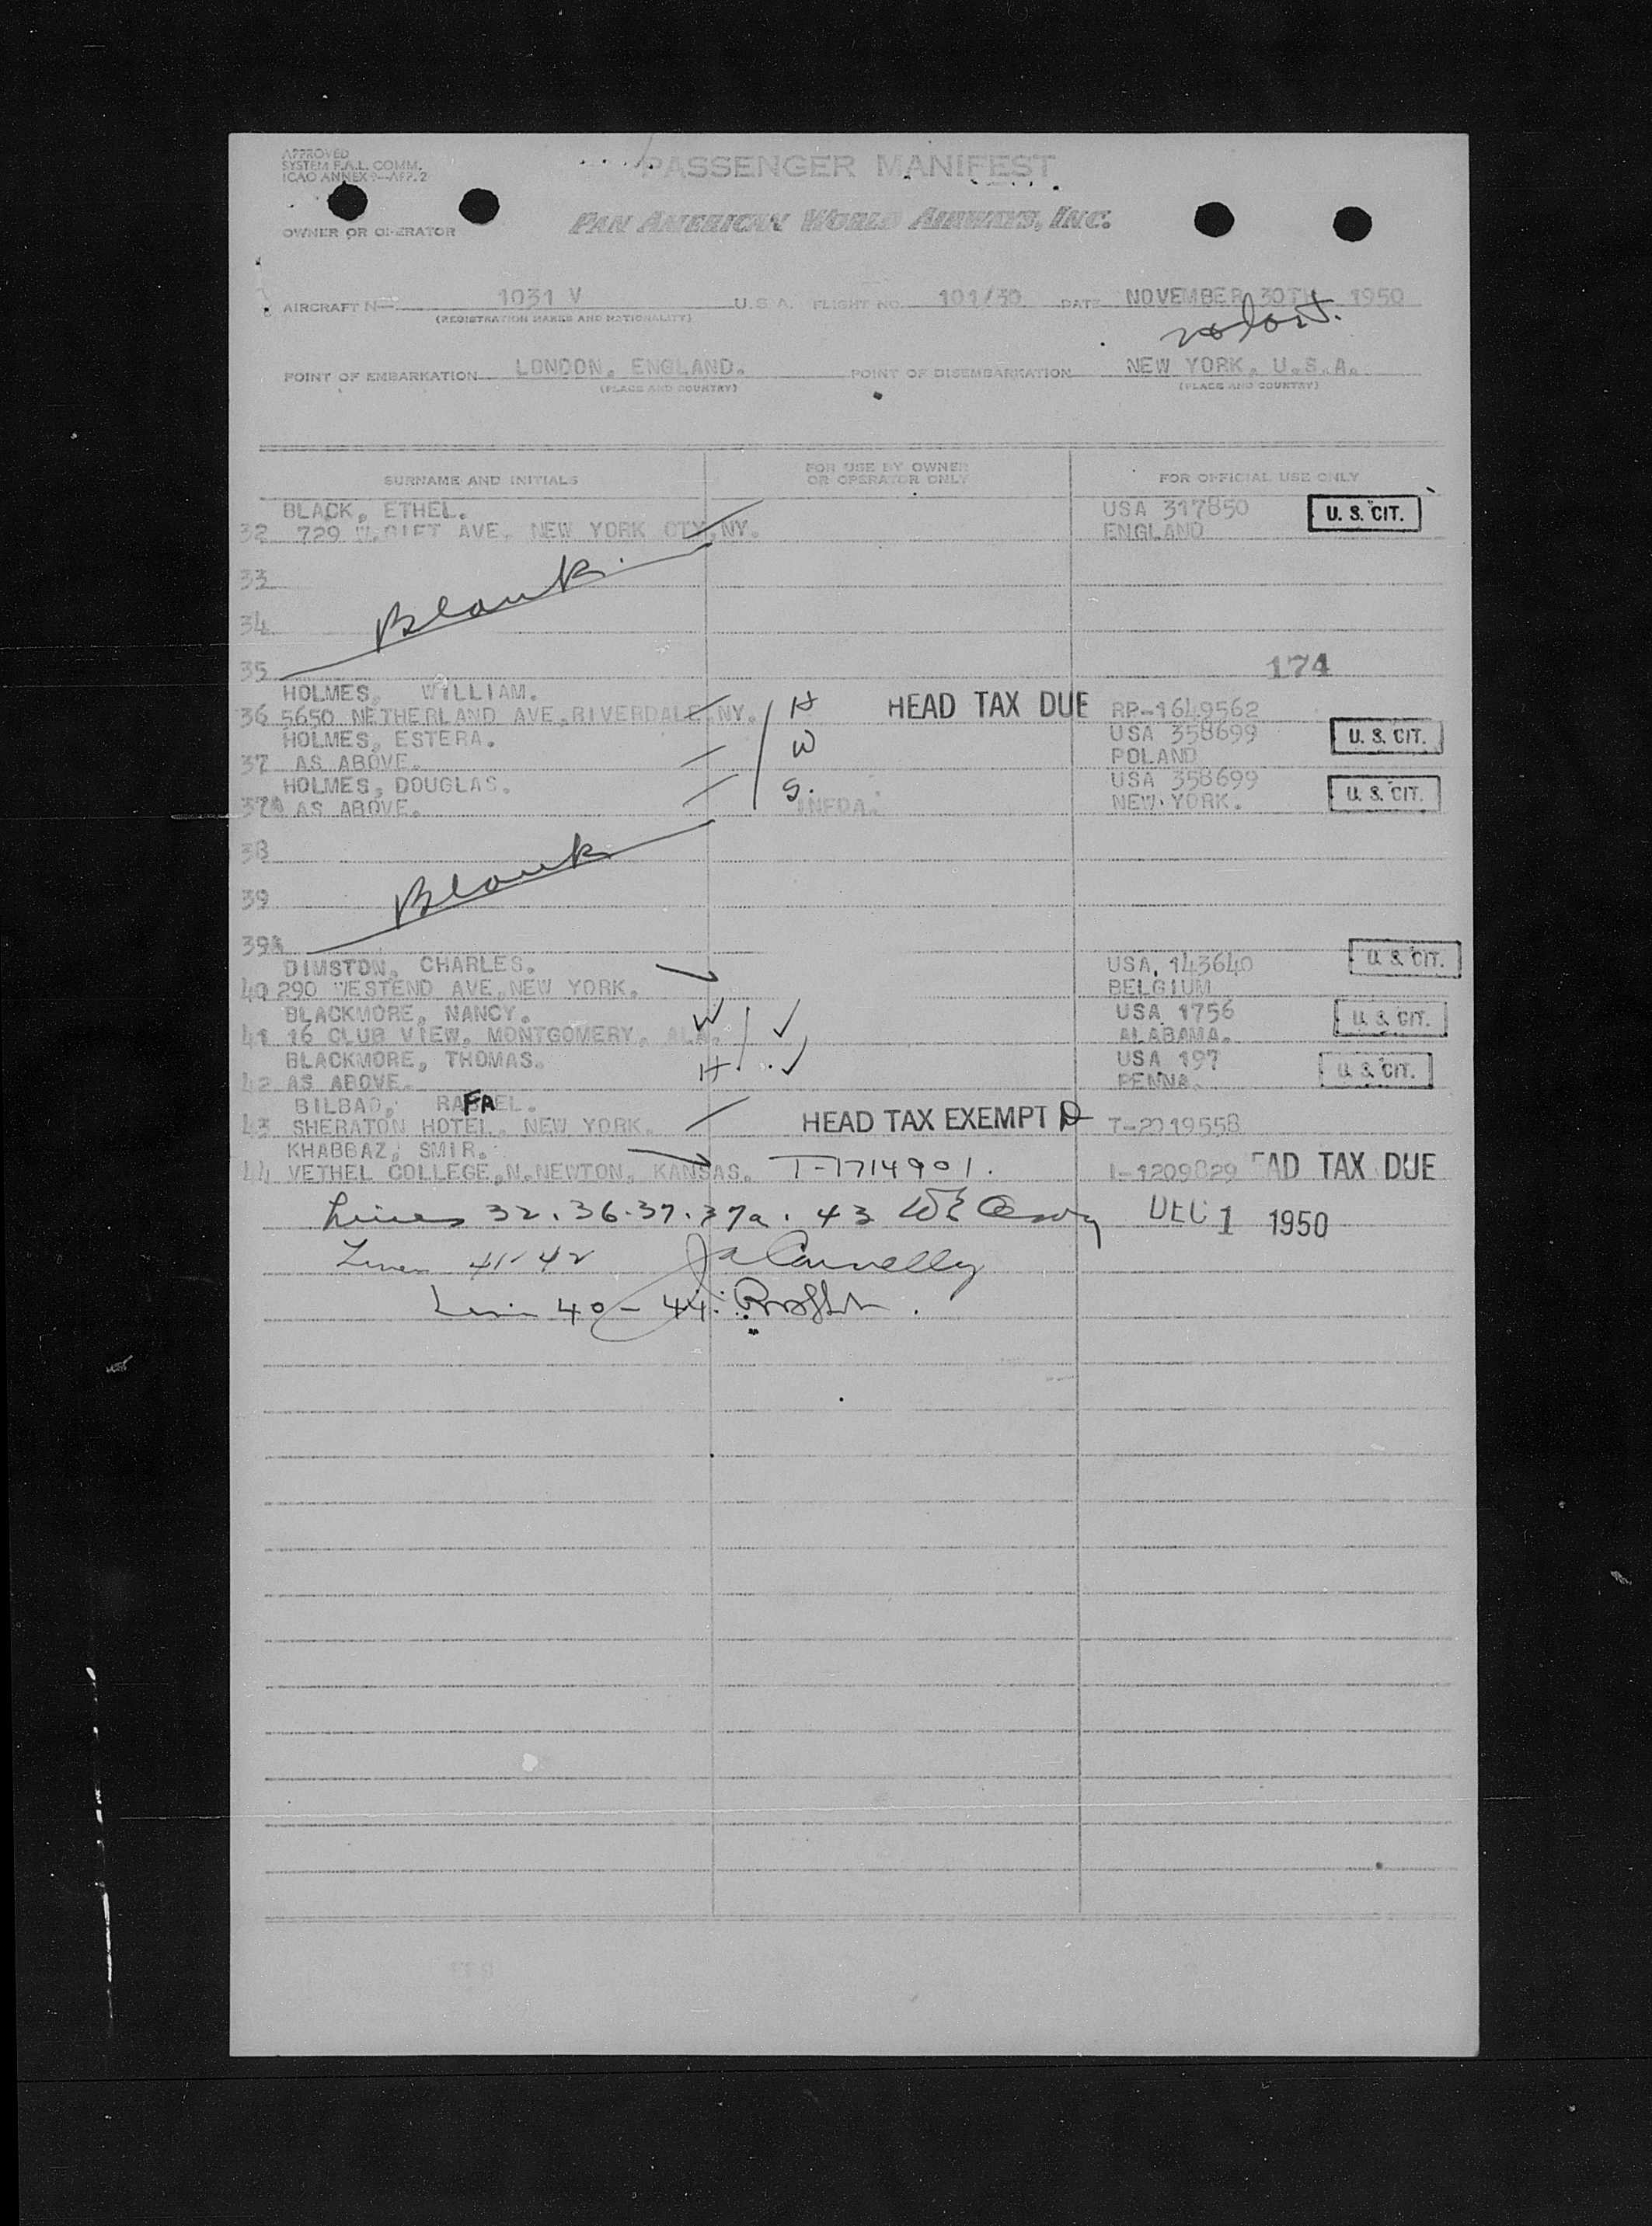 APPROVED
SYSTEM F.A.L. COMM.
ICAO ANNEX 9—APP. 2
PASSENGER MANIFEST
OWNER OR OPERATOR
PAN AMERICAN WORLD AIRWAYS, INC.
AIRCRAFT N— 1031 V U.S.A. FLIGHT NO. 101/30 DATE NOVEMBER 30TH 1950
(REGISTRATION MARKS AND NATIONALITY)
POINT OF EMBARKATION LONDON, ENGLAND. POINT OF DISEMBARKATION NEW YORK, U.S.A.
(PLACE AND COUNTRY) (PLACE AND COUNTRY)
SURNAME AND INITIALS FOR USE BY OWNER OR OPERATOR ONLY FOR OFFICIAL USE ONLY
BLACK, ETHEL. USA 317850 U. S. CIT.
32 729 AVE, NEW YORK CTY, NY. ENGLAND
33
Blank
34
35 174
HOLMES, WILLIAM.
36 5650 NETHERLAND AVE, RIVERDALE, NY. H HEAD TAX DUE RP-1649562
HOLMES, ESTERA. W USA 358699 U. S. CIT.
37 AS ABOVE. POLAND
HOLMES, DOUGLAS. S. USA 358699 U. S. CIT.
37A AS ABOVE. NEW YORK.
38
Blank
39
39A
DIMSTON, CHARLES. USA, 143640 U. S. CIT.
40 290 WESTEND AVE, NEW YORK. BELGIUM
BLACKMORE, NANCY. W USA 1756 U. S. CIT.
41 16 CLUB VIEW, MONTGOMERY, ALA. ALABAMA.
BLACKMORE, THOMAS. H USA 197 U. S. CIT.
42 AS ABOVE. PENNA.
BILBAO, RAFAEL.
43 SHERATON HOTEL, NEW YORK. HEAD TAX EXEMPT D T-2019558
KHABBAZ, SMIR.
44 VETHEL COLLEGE, N. NEWTON, KANSAS. T-1714901. I-1209829 EAD TAX DUE
Lines 32. 36. 37. 37a. 43 DEC 1 1950
Lines 41-42 Connelly
Line 40-44.